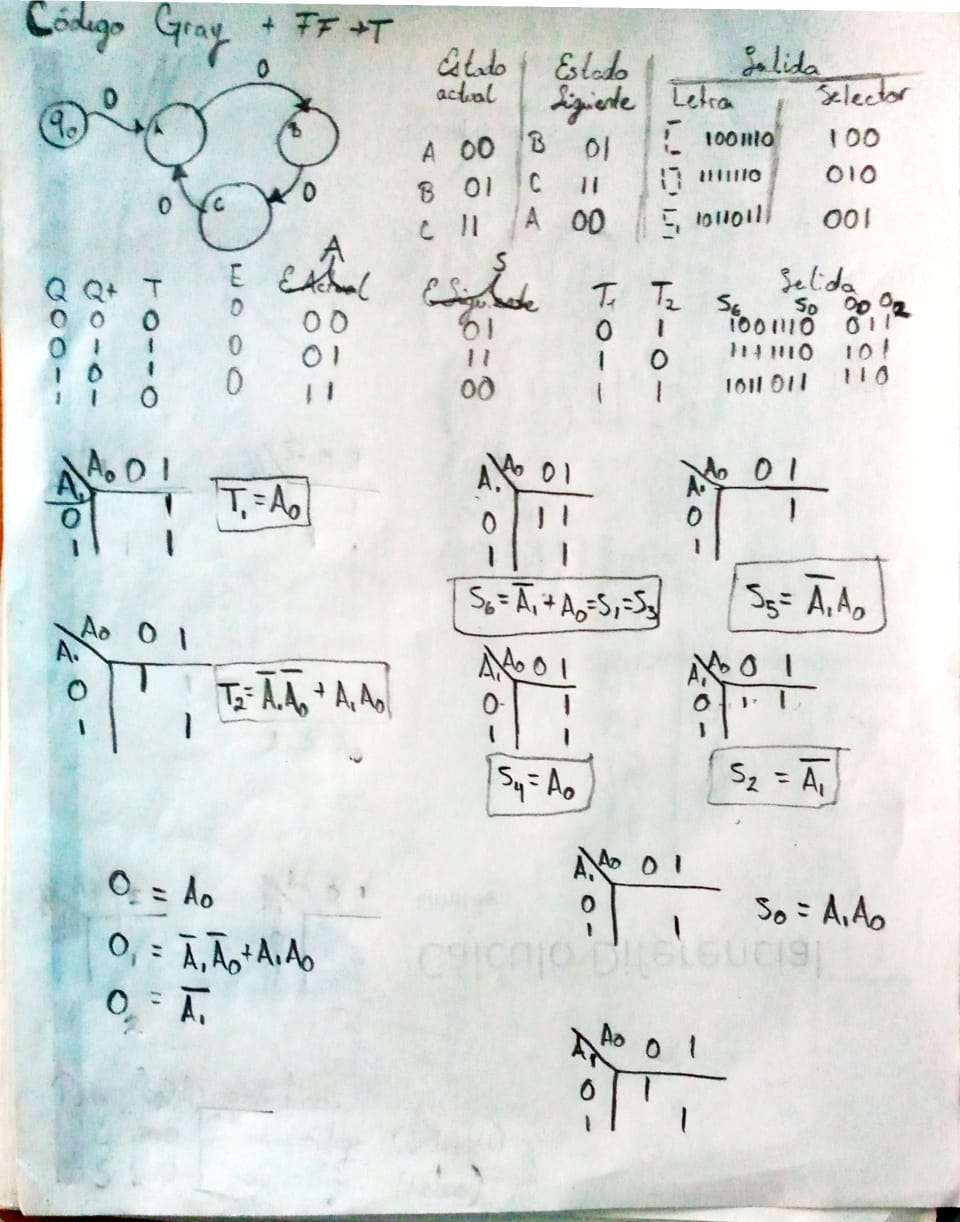 Código Gray + FF → T
0
0
q₀
A
B
0
C
0
Estado actual | Estado Siguiente | Salida
Letra Selector
A 00 | B 01 | 1001110 100
B 01 | C 11 | 1111110 010
C 11 | A 00 | 1011011 001
A S
Q Q+ T E E Actual E Siguiente T₁ T₂ Salida
S₆ S₀ O₀ O₂
0 0 0 0 00 01 0 1 1001110 011
0 1 1 0 01 11 1 0 1111110 101
1 0 1 0 11 00 1 1 1011011 110
1 1 0
A₁ A₀ 0 1
0 1
1 1
T₁ = A₀
A₁ A₀ 0 1
0 1 1
1 1
S₆ = A̅₁ + A₀ = S₁ = S₃
A₁ A₀ 0 1
0 1
1
S₅ = A̅₁A₀
A₁ A₀ 0 1
0 1
1 1
T₂ = A̅₁A̅₀ + A₁A₀
A₁ A₀ 0 1
0 1
1 1
S₄ = A₀
A₁ A₀ 0 1
0 1 1
1
S₂ = A̅₁
O = A₀
O₁ = A̅₁A̅₀ + A₁A₀
O₂ = A̅₁
A₁ A₀ 0 1
0
1 1
S₀ = A₁A₀
A₁ A₀ 0 1
0 1
1 1
Cálculo Diferencial